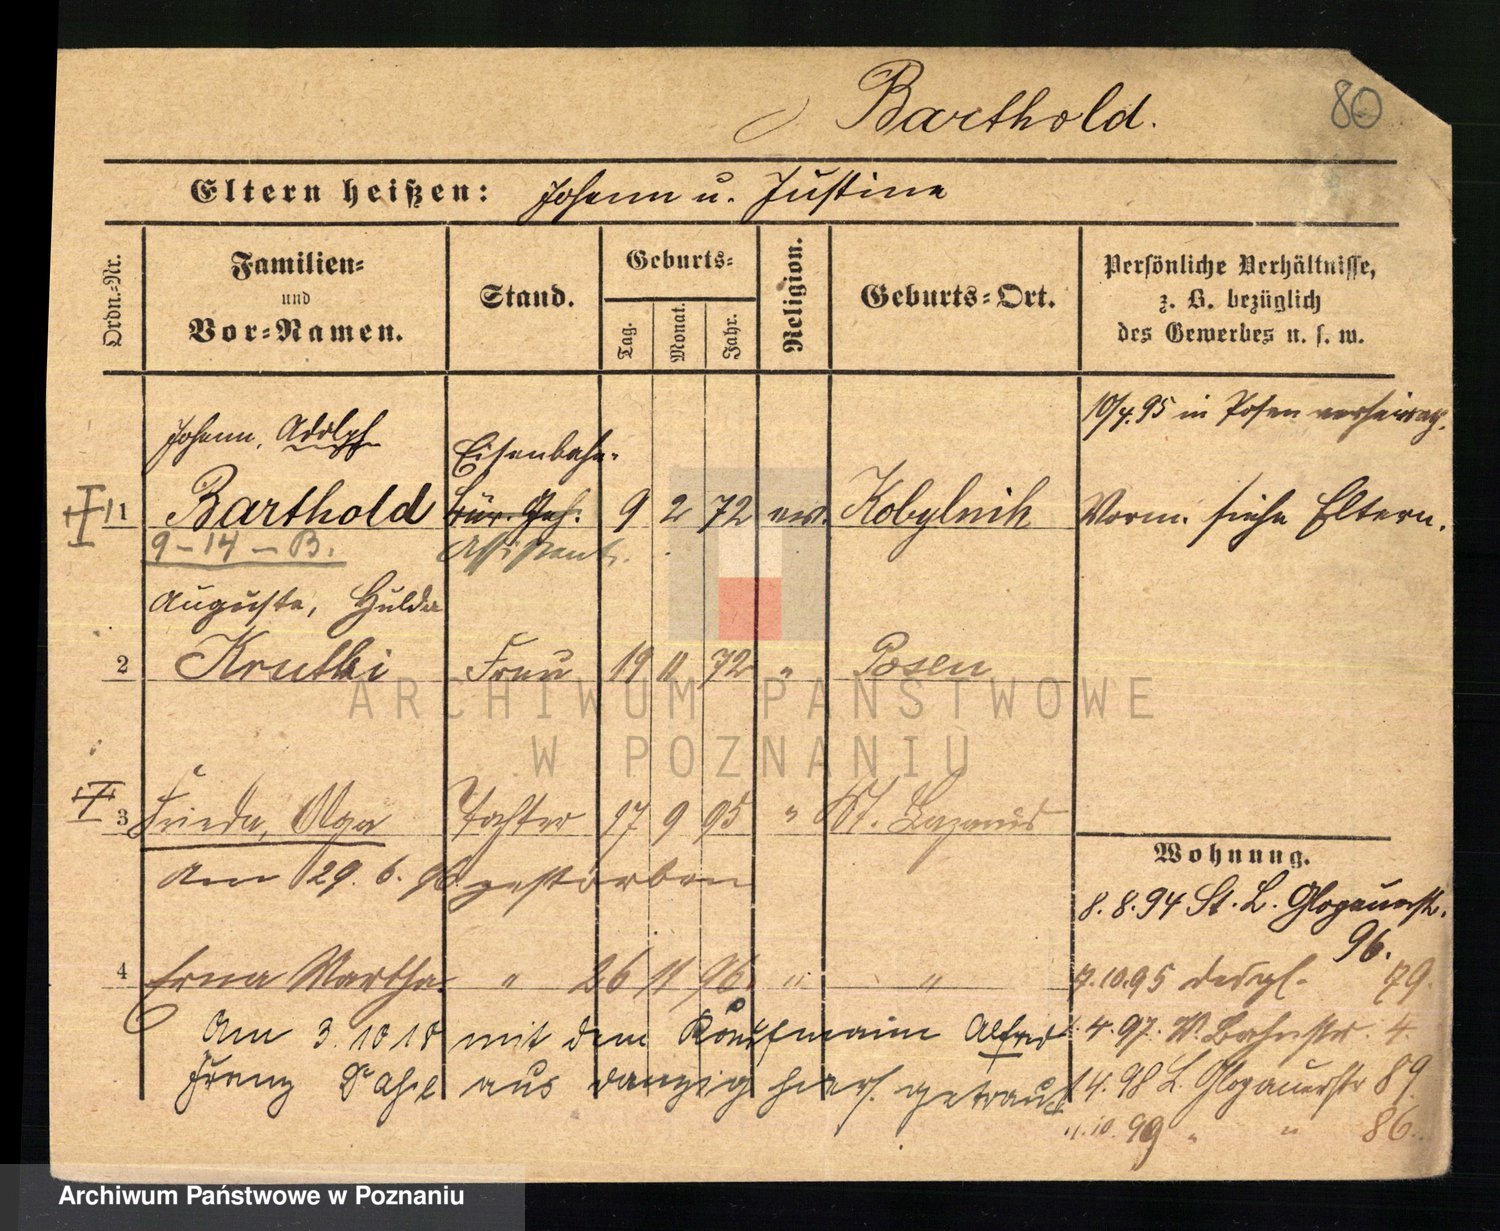 Barthold.
80
Eltern heißen: Johann u. Justine
Ordn.-Nr.
Familien-
und
Vor-Namen.
Stand.
Geburts-
Tag.
Monat.
Jahr.
Religion.
Geburts-Ort.
Persönliche Verhältnisse,
z. B. bezüglich
des Gewerbes u. s. w.
10/4.95 in Posen verheirat.
Johann, Adolph
Eisenbahn-
1 Barthold Bür. Geh. 9 2 72 ev. Kobylnik Vorm. siehe Eltern.
9-14-B. Assistent.
Auguste, Hulda
2 Krutki Frau 19 11 72 " Posen
3 Frieda, Olga Tochter 17 9 95 " St. Lazarus
am 29. 6. 96 gestorben
Wohnung.
8. 8. 94 St. L. Glogauerstr.
96.
4 Erna Martha " 26 11 96 " "
7.10.95 desgl. 79.
Am 3. 10 18 mit dem Kaufmann Alfred
4. 97. W. Bahnstr. 4.
Franz aus Danzig hiers. getraut
4. 98 L. Glogauerstr 89.
1.10.99 " " 86.
ARCHIWUM PAŃSTWOWE
W POZNANIU
Archiwum Państwowe w Poznaniu